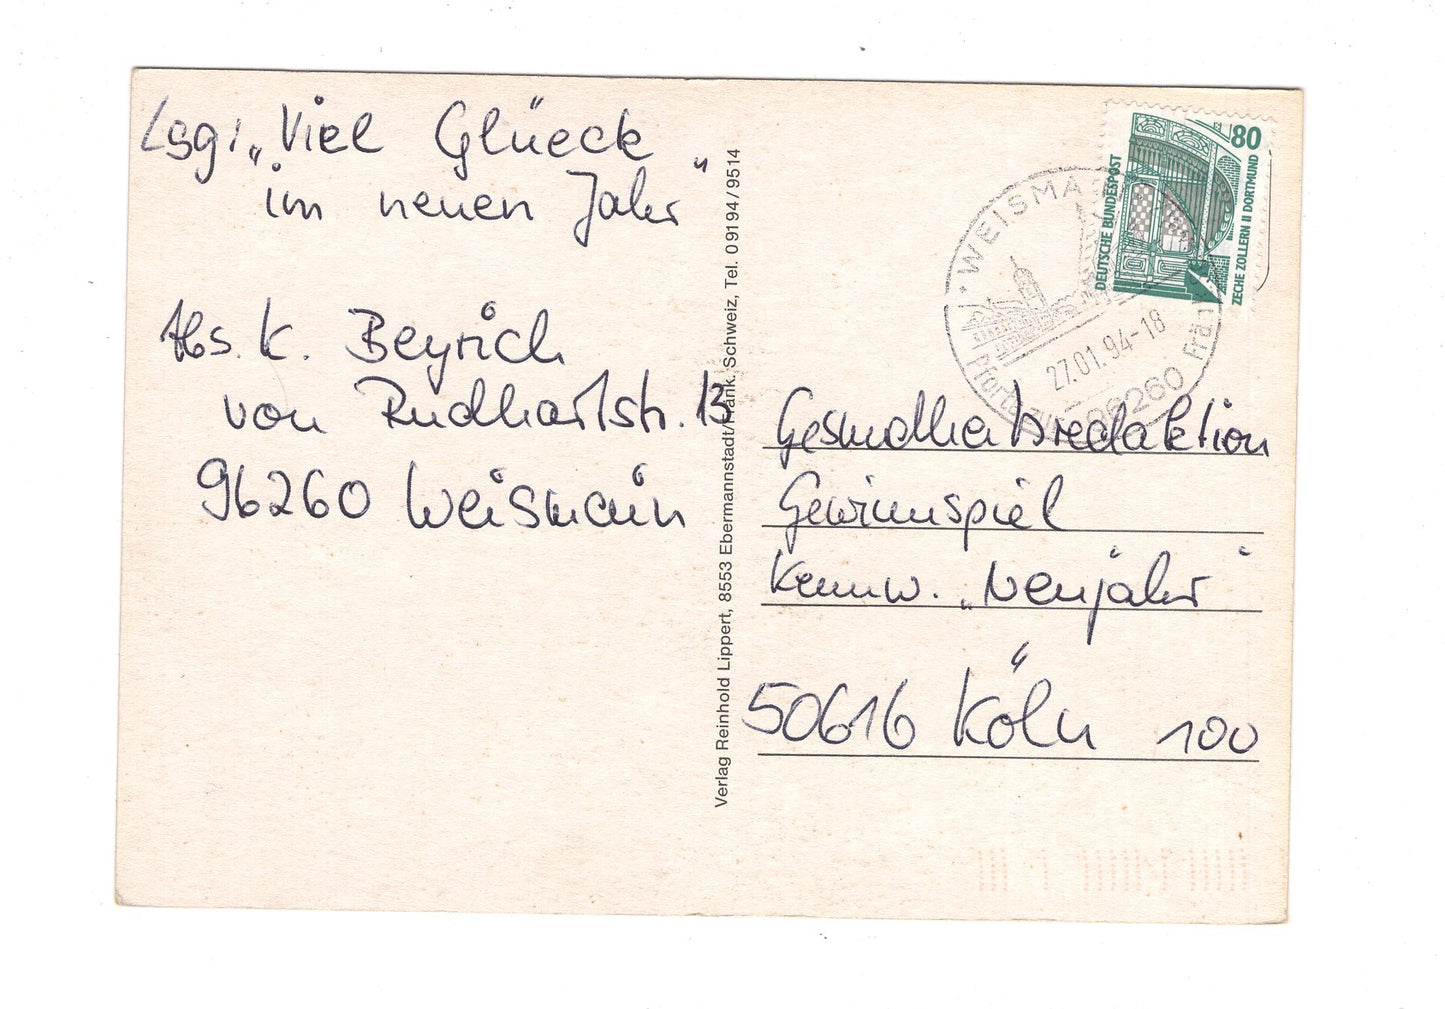 Lsg: „Viel Glüeck
im neuen Jahr"
Abs. K. Beyrich
von Rudhartstr. 13
96260 Weismain
Verlag Reinhold Lippert, 8553 Ebermannstadt/Fränk. Schweiz, Tel. 0 91 94 / 95 14
80
DEUTSCHE BUNDESPOST
ZECHE ZOLLERN II DORTMUND
WEISMA
27.01.94-18
96260
Pforte zur Frän
Gesundheitsredaktion
Gewinnspiel
Kennw. „Neujahr"
50616 Köln 100